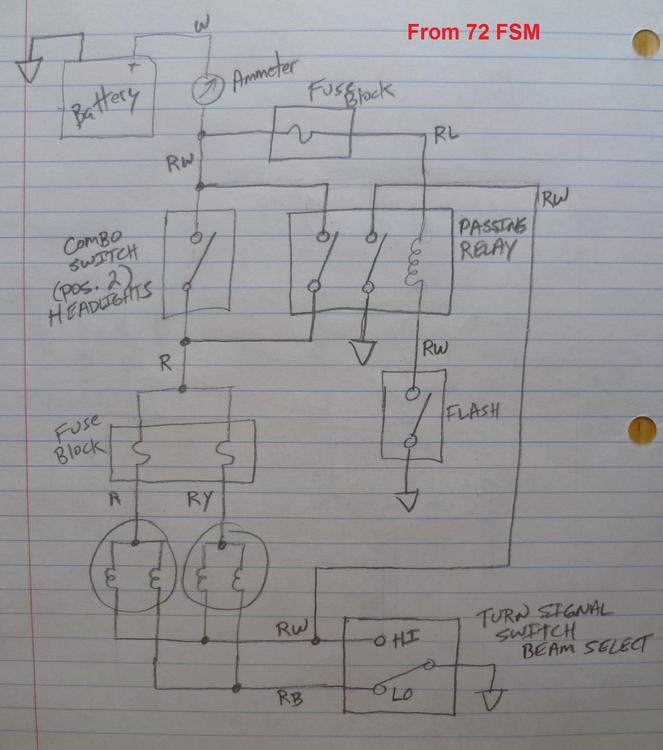 From 72 FSM
W
+
Battery
Ammeter
Fuse
Block
RL
RW
RW
COMBO
SWITCH
(POS. 2)
HEADLIGHTS
PASSING
RELAY
R
RW
FLASH
Fuse
Block
R
RY
RW
HI
LO
RB
TURN SIGNAL
SWITCH
BEAM SELECT